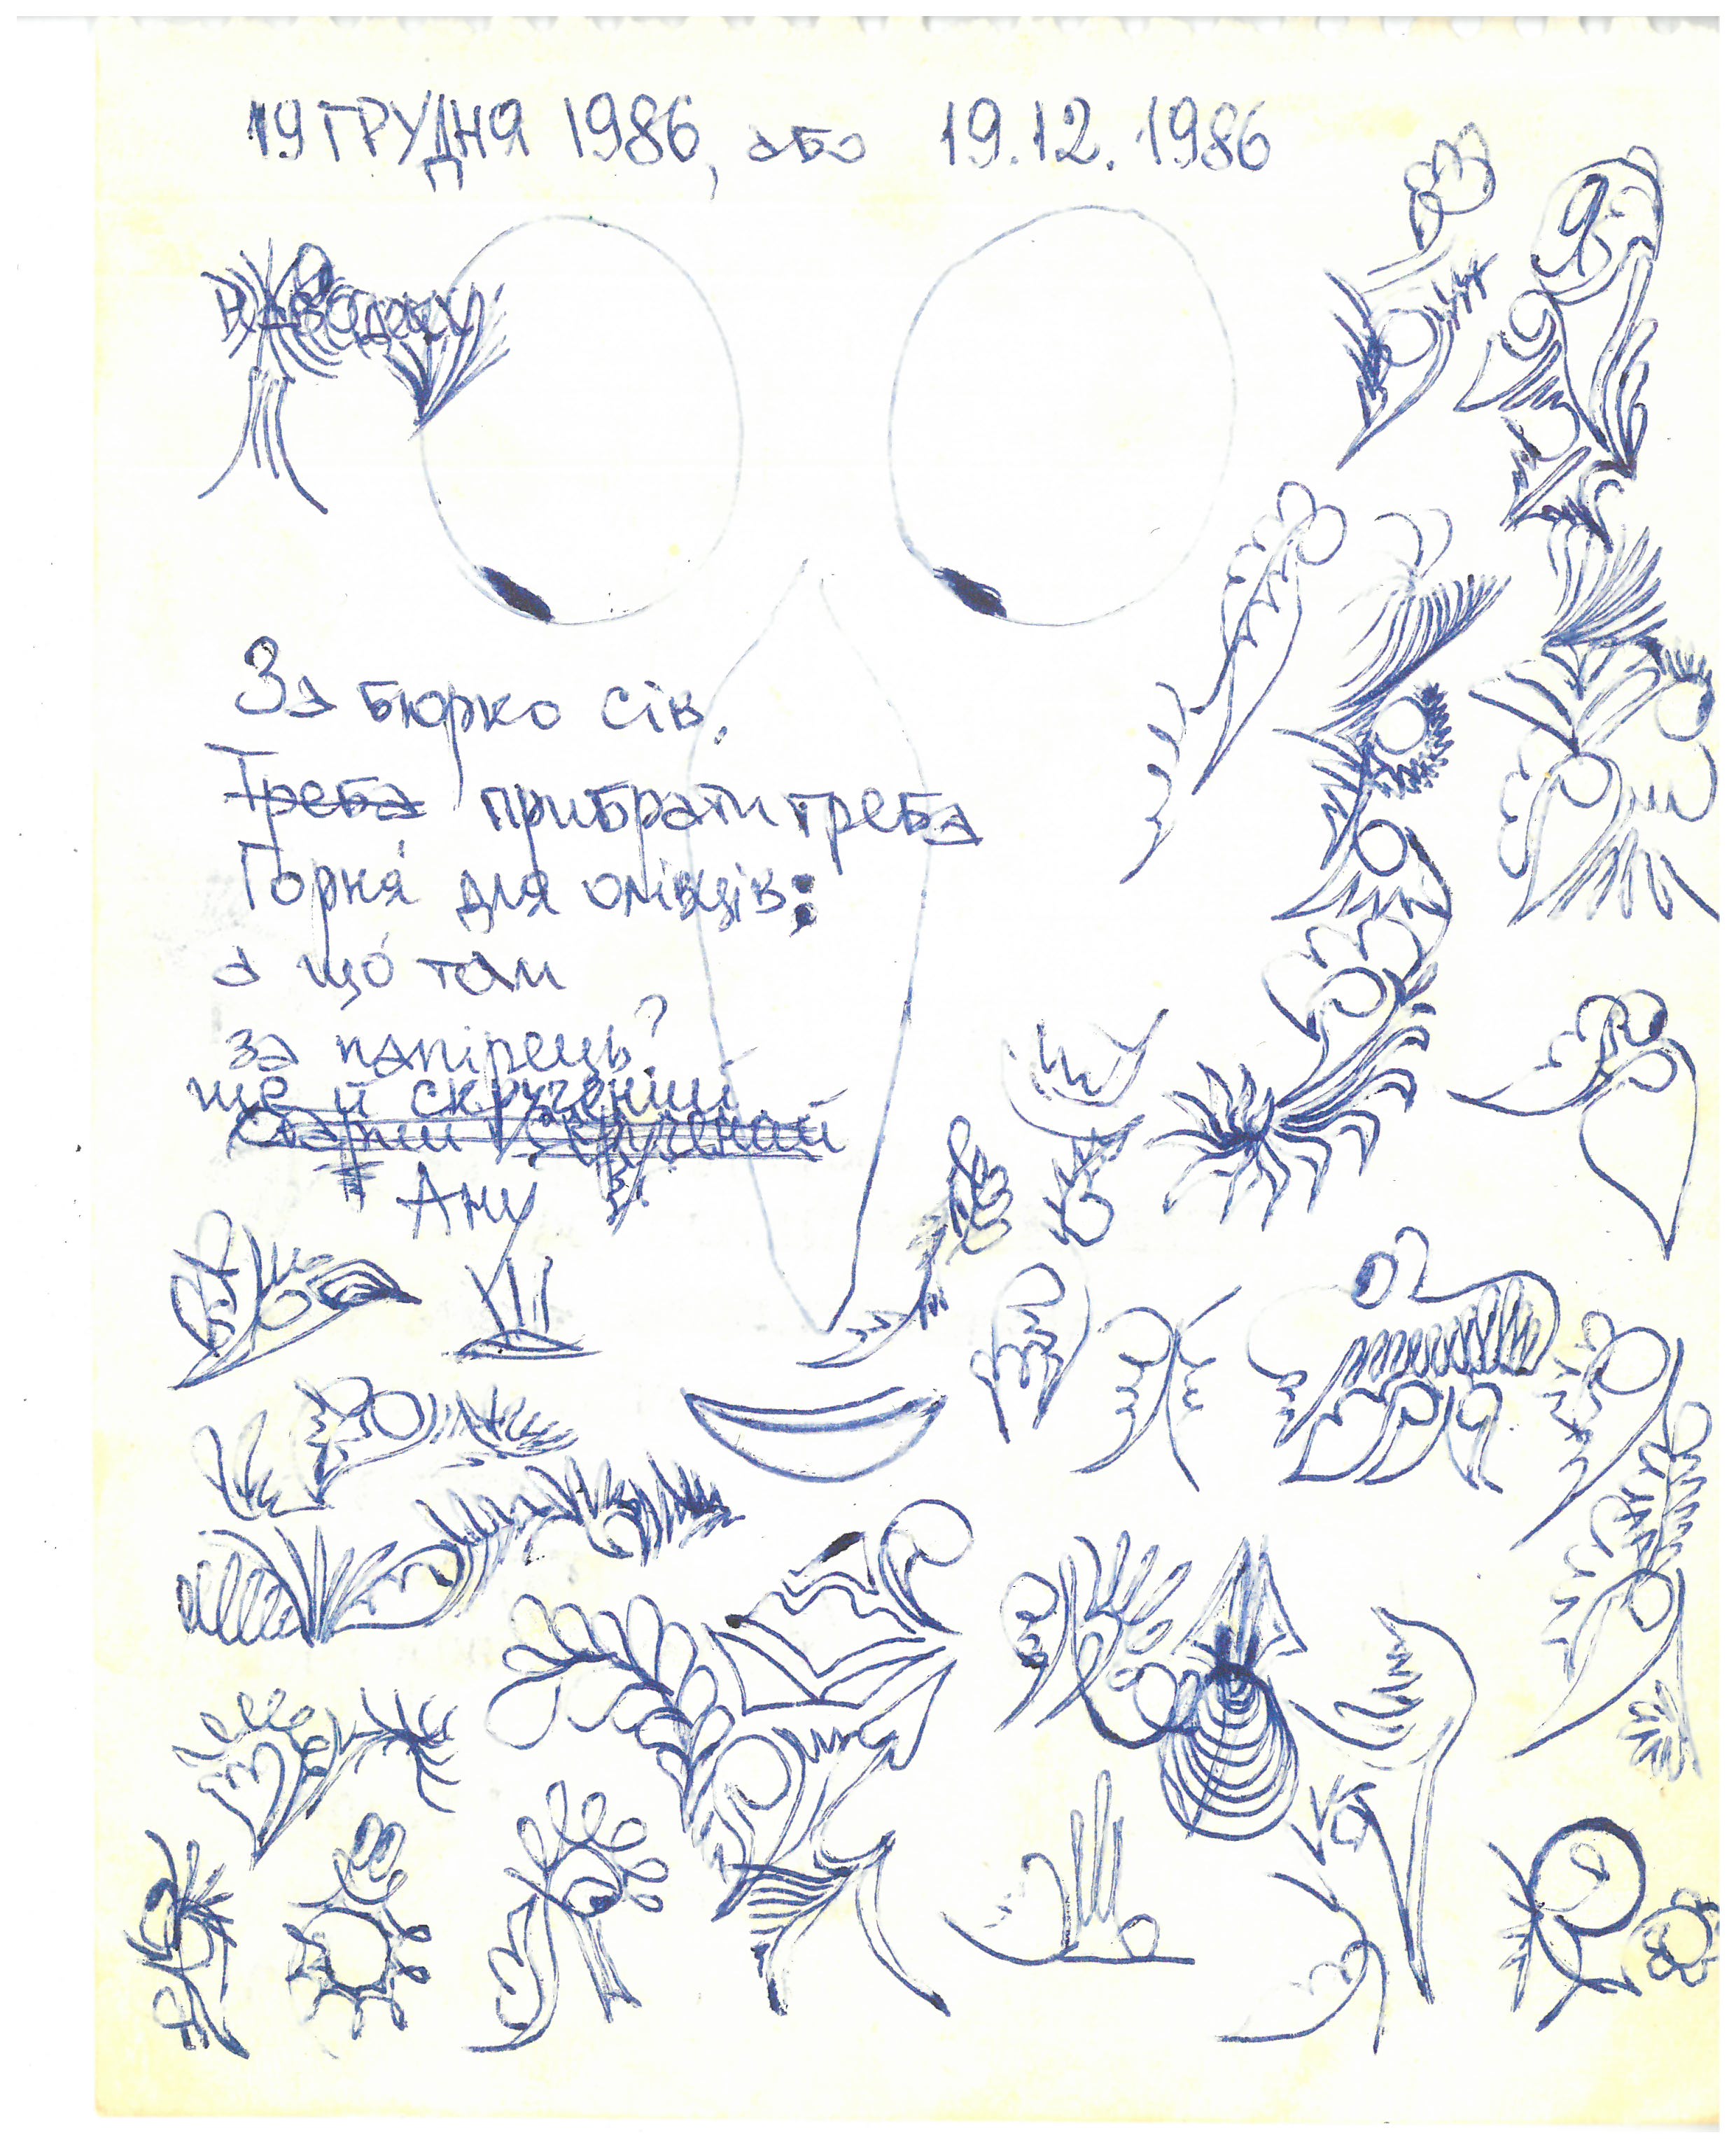 19 ГРУДНЯ 1986, або 19.12.1986
За бюрко сів.
Треба прибрати треба
Горня́ для олівців:
а що́ там
за папірець?
ще й скручений
старий скручений
Ану